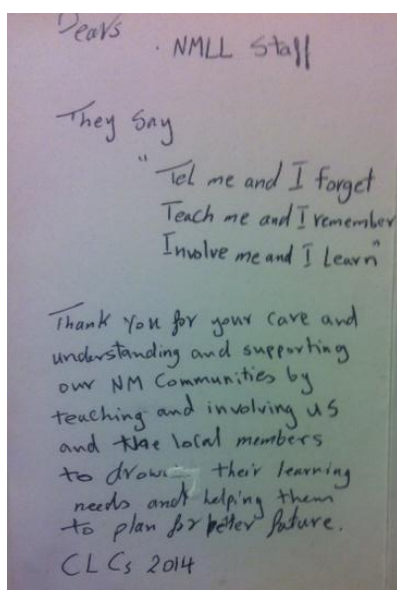 Dears
. NMLL Staff
They Say
" Tel me and I forget
Teach me and I remember
Involve me and I Learn"
Thank you for your care and
understanding and supporting
our NM Communities by
teaching and involving us
and the local members
to drow their learning
needs and helping them
to plan for peter future.
CLCs 2014